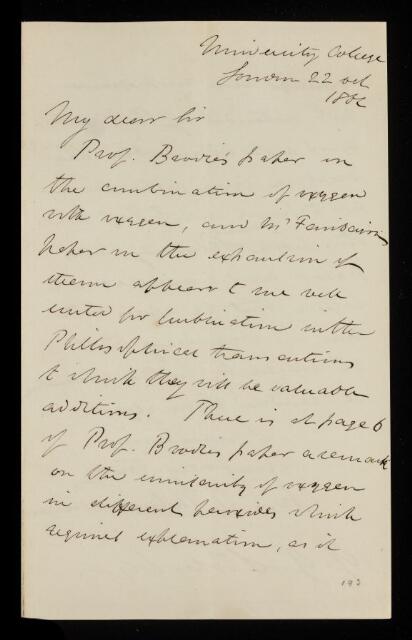 University College
London 22 Oct
186
My dear Sir
Prof. Brodie's paper on
the combination of oxygen
with oxygen, and Mr Fairbairn's
paper on the expansion of
steam appear to me well
suited for publication in the
Philosophical transactions
to which they will be valuable
additions. There is at page 6
of Prof. Brodie's paper a remark
on the similarity of oxygen
in different peroxides which
requires explanation, as it
193